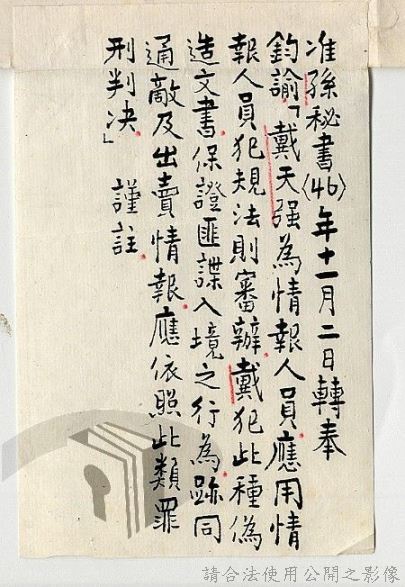 准孫秘書〈46〉年十一月二日轉奉
鈞諭「戴天强為情報人員應用情
報人員犯規法則審辦戴犯此種偽
造文書保證匪諜入境之行為跡同
通敵及出賣情報應依照此類罪
刑判决」　謹註
請合法使用公開之影像